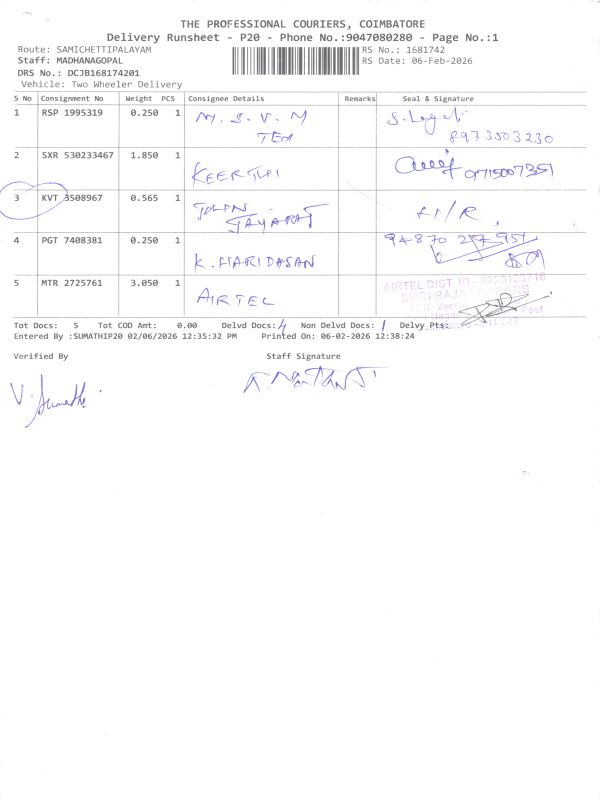 THE PROFESSIONAL COURIERS, COIMBATORE
Delivery Runsheet - P20 - Phone No.:9047080280 - Page No.:1
Route: SAMICHETTIPALAYAM RS No.: 1681742
Staff: MADHANAGOPAL RS Date: 06-Feb-2026
DRS No.: DCJB168174201
Vehicle: Two Wheeler Delivery
S No Consignment No Weight PCS Consignee Details Remarks Seal & Signature
1 RSP 1995319 0.250 1 M. S. V. M
TEX 8973503230
2 SXR 530233467 1.850 1 KEERTHI
3 KVT 3508967 0.565 1 JOHN
JAYARAJ
4 PGT 7408381 0.250 1 K. HARIDASAN
5 MTR 2725761 3.050 1 AIRTEL
AIRTEL DIST. ID -
SHRI RAJA
Post
Tot Docs: 5 Tot COD Amt: 0.00 Delvd Docs: 4 Non Delvd Docs: 1 Delvy Pts:
Entered By :SUMATHIP20 02/06/2026 12:35:32 PM Printed On: 06-02-2026 12:38:24
Verified By Staff Signature
V. Sumathi